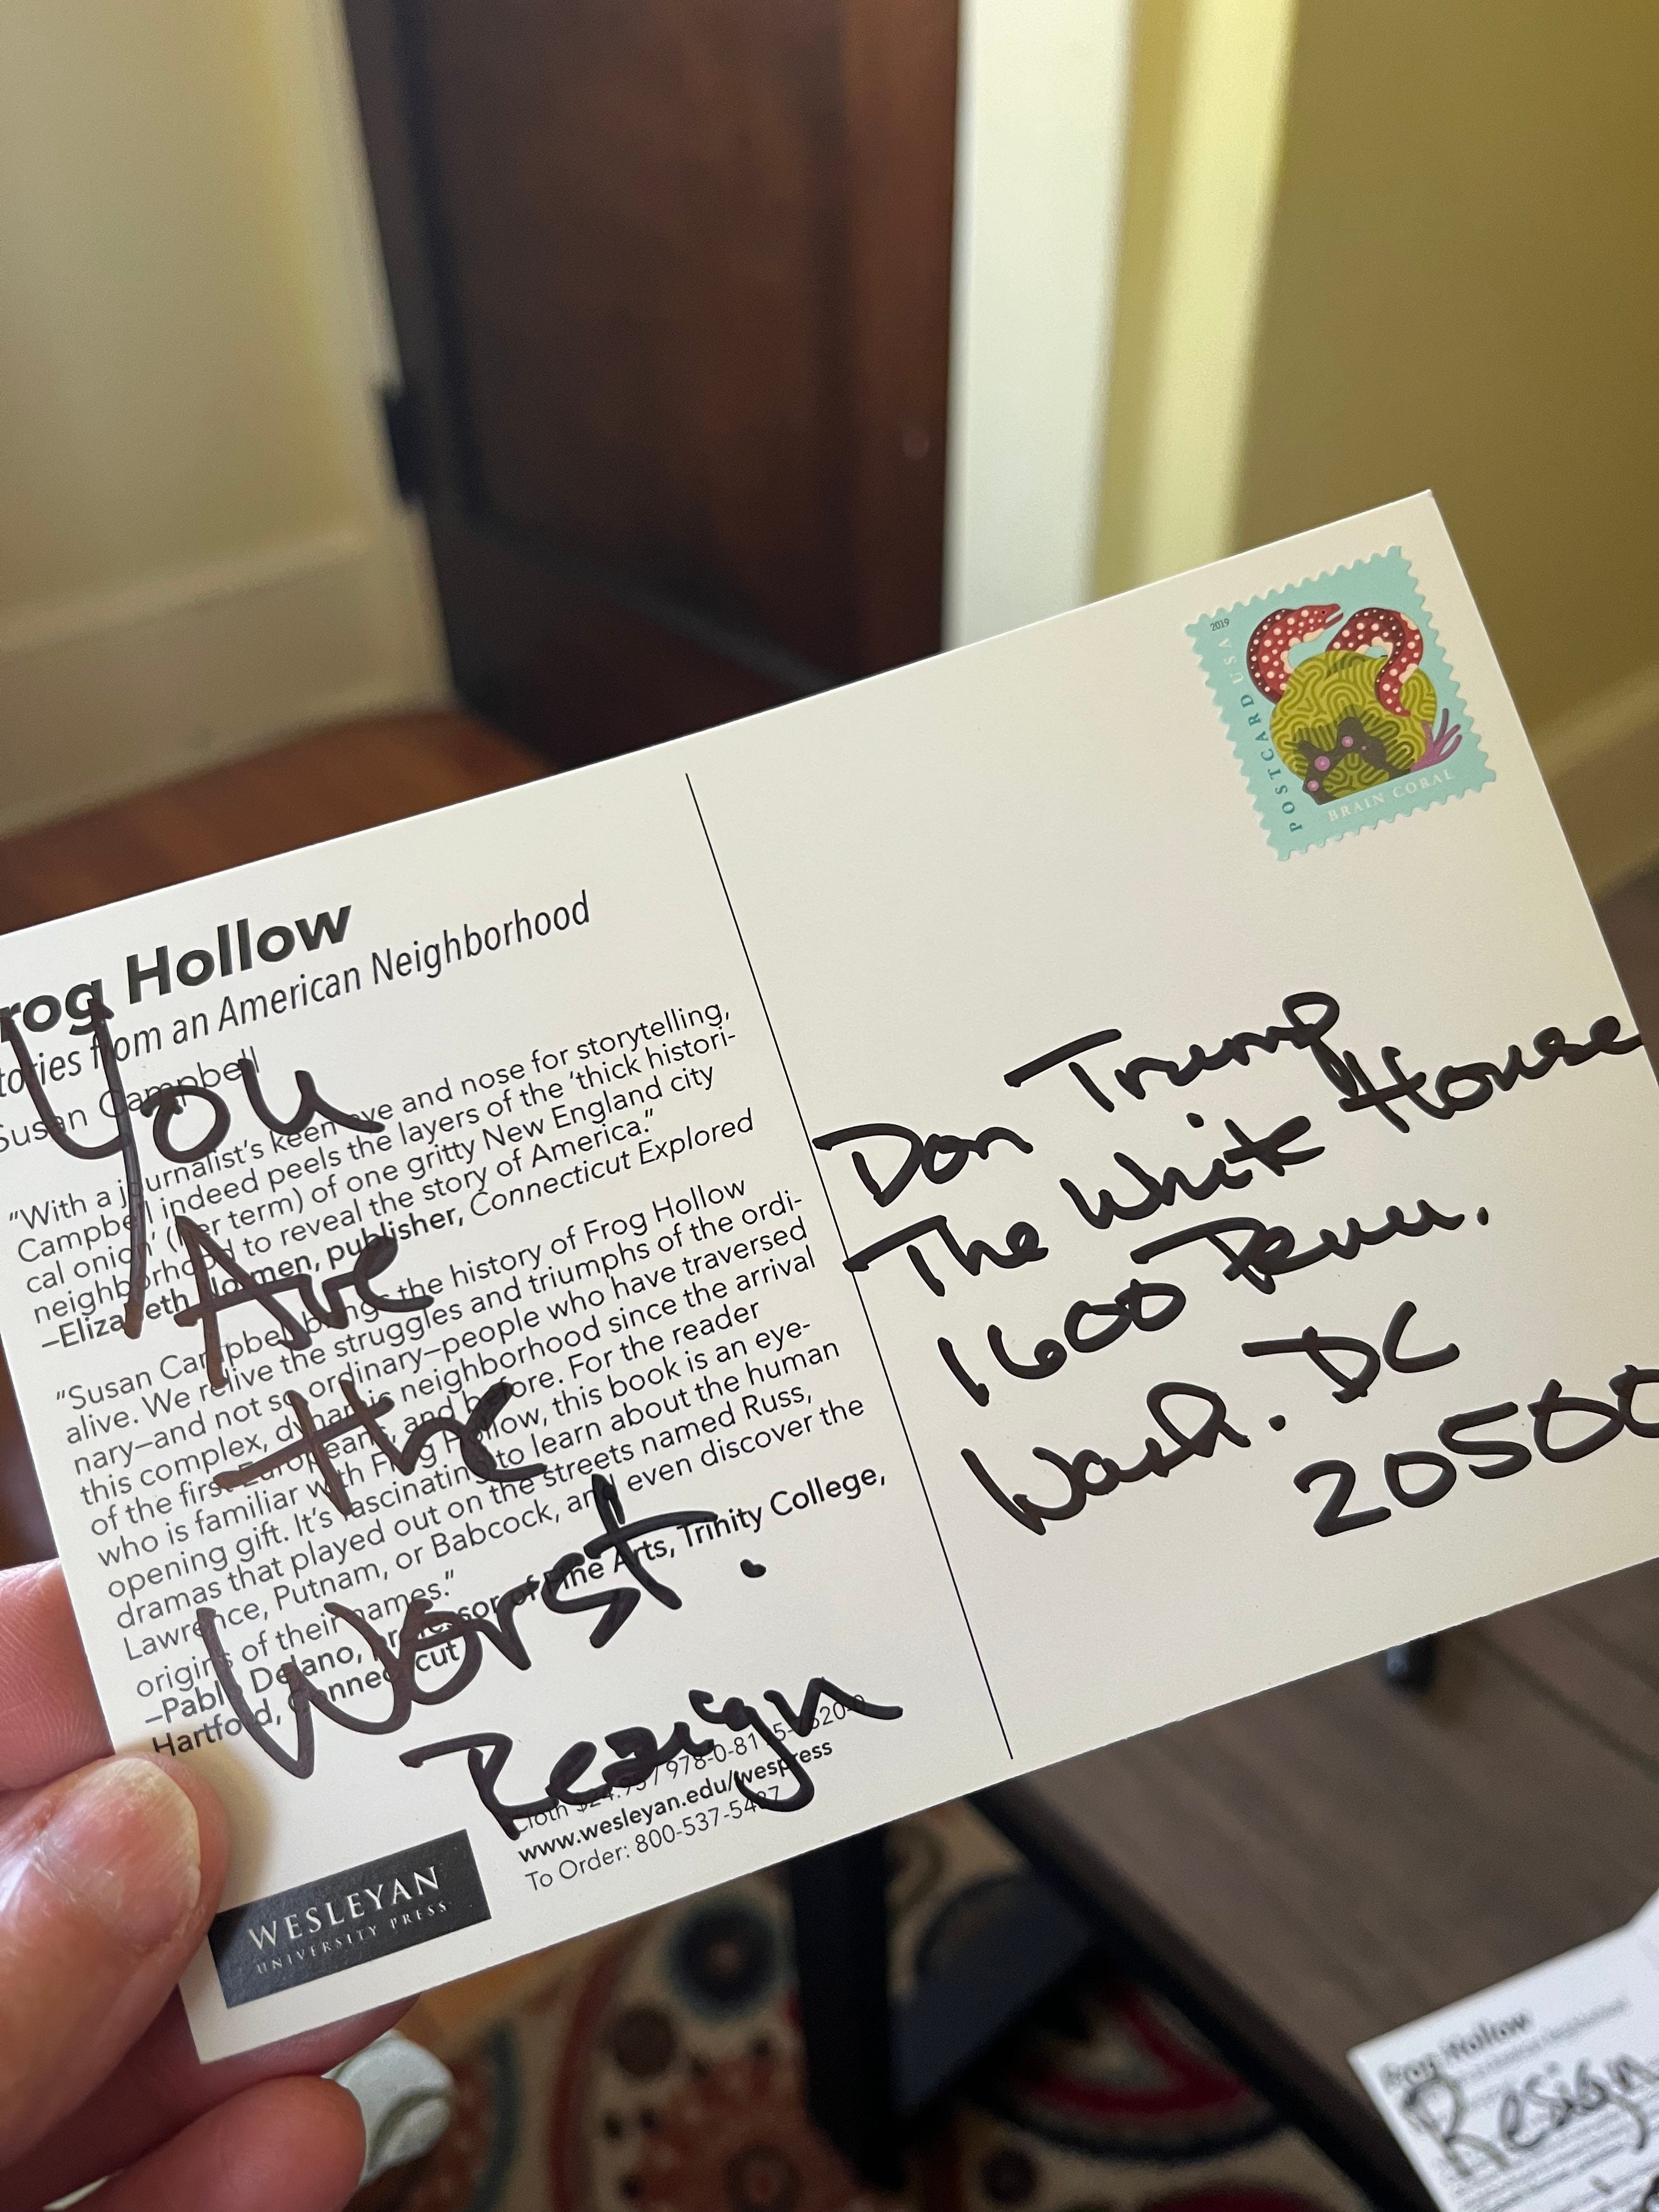 rog Hollow
tories from an American Neighborhood
Susan Campbell
"With a journalist's keen eye and nose for storytelling,
Campbell indeed peels the layers of the 'thick histori-
cal onion' (her term) of one gritty New England city
neighborhood to reveal the story of America."
–Elizabeth Normen, publisher, Connecticut Explored
"Susan Campbell brings the history of Frog Hollow
alive. We relive the struggles and triumphs of the ordi-
nary–and not so ordinary–people who have traversed
this complex, dynamic neighborhood since the arrival
of the first Europeans, and before. For the reader
who is familiar with Frog Hollow, this book is an eye-
opening gift. It's fascinating to learn about the human
dramas that played out on the streets named Russ,
Lawrence, Putnam, or Babcock, and even discover the
origins of their names."
–Pablo Delano, professor of Fine Arts, Trinity College,
Hartford, Connecticut
Cloth $24.95 / 978-0-8195-
www.wesleyan.edu/wespress
To Order: 800-537-5487
WESLEYAN
UNIVERSITY PRESS
You
Are
the
Worst.
Resign
2019
POSTCARD USA
BRAIN CORAL
Don Trump
The White House
1600 Penn.
Wash. DC
20500
Frog Hollow
Resign